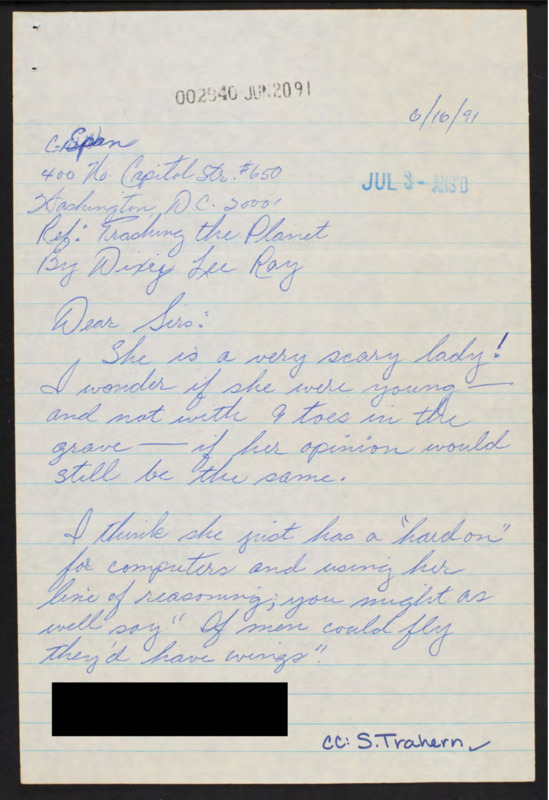 002940 JUN 20 91
6/16/91
C-Span
400 No. Capitol Str. #650
JUL 3 - ANS'D
Washington, D.C. 20001
Ref: Trashing the Planet
By Dixie Lee Ray
Dear Sirs:
She is a very scary lady!
I wonder if she were young —
and not with 9 toes in the
grave — if her opinion would
still be the same.
I think she just has a "hard on"
for computers and using her
line of reasoning; you might as
well say "If men could fly
they'd have wings".
cc: S. Trahern